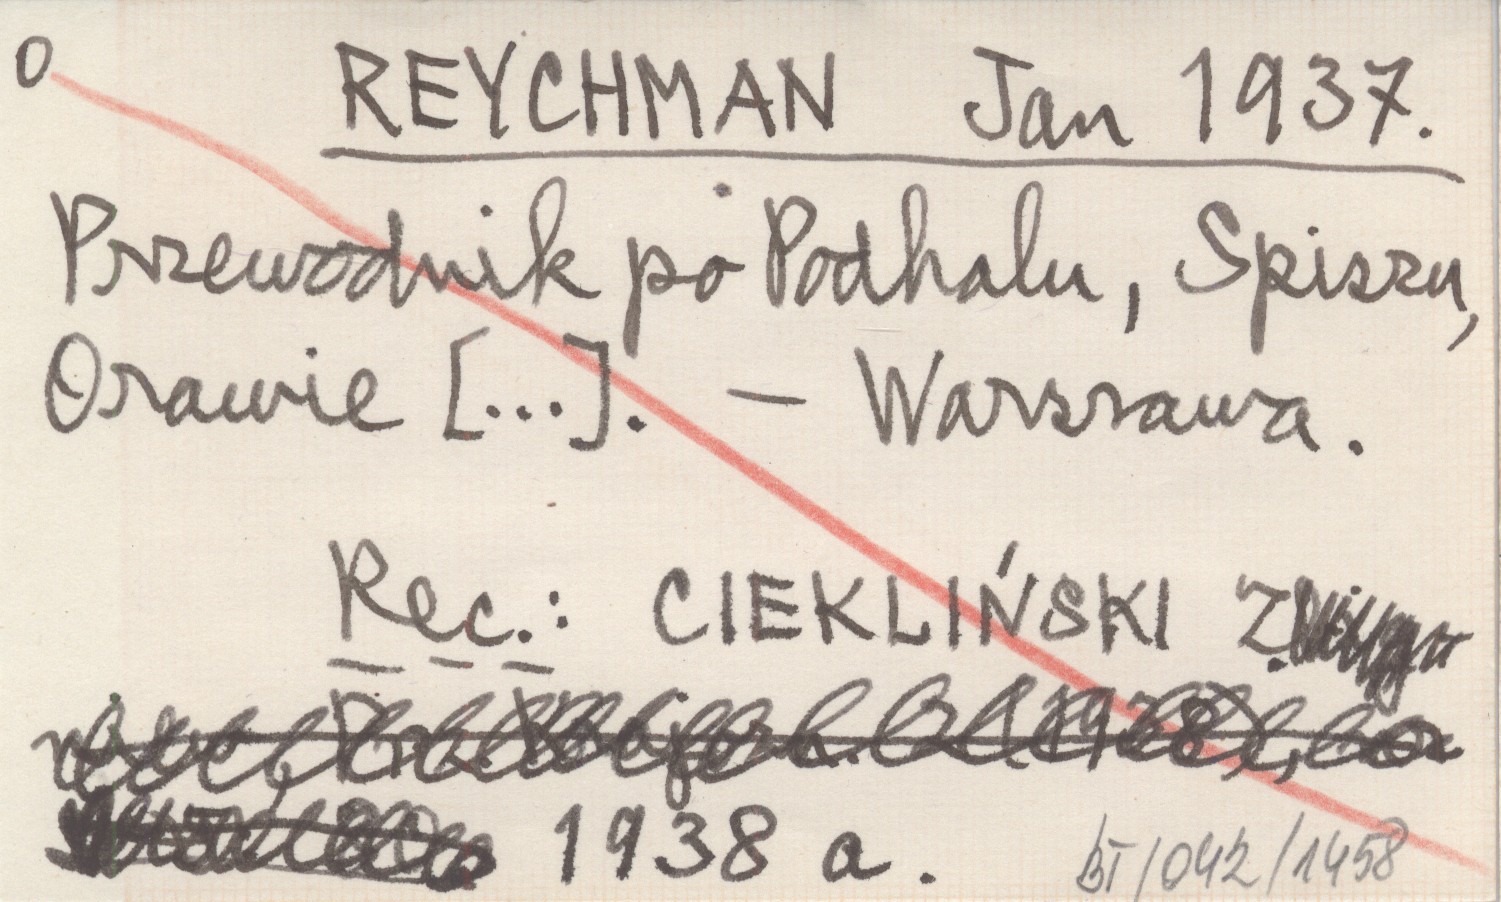 O REYCHMAN Jan 1937.
Przewodnik po Podhalu, Spiszu,
Orawie [...]. – Warszawa.
Rec.: CIEKLIŃSKI Z.
1938 a.
BT/042/1458